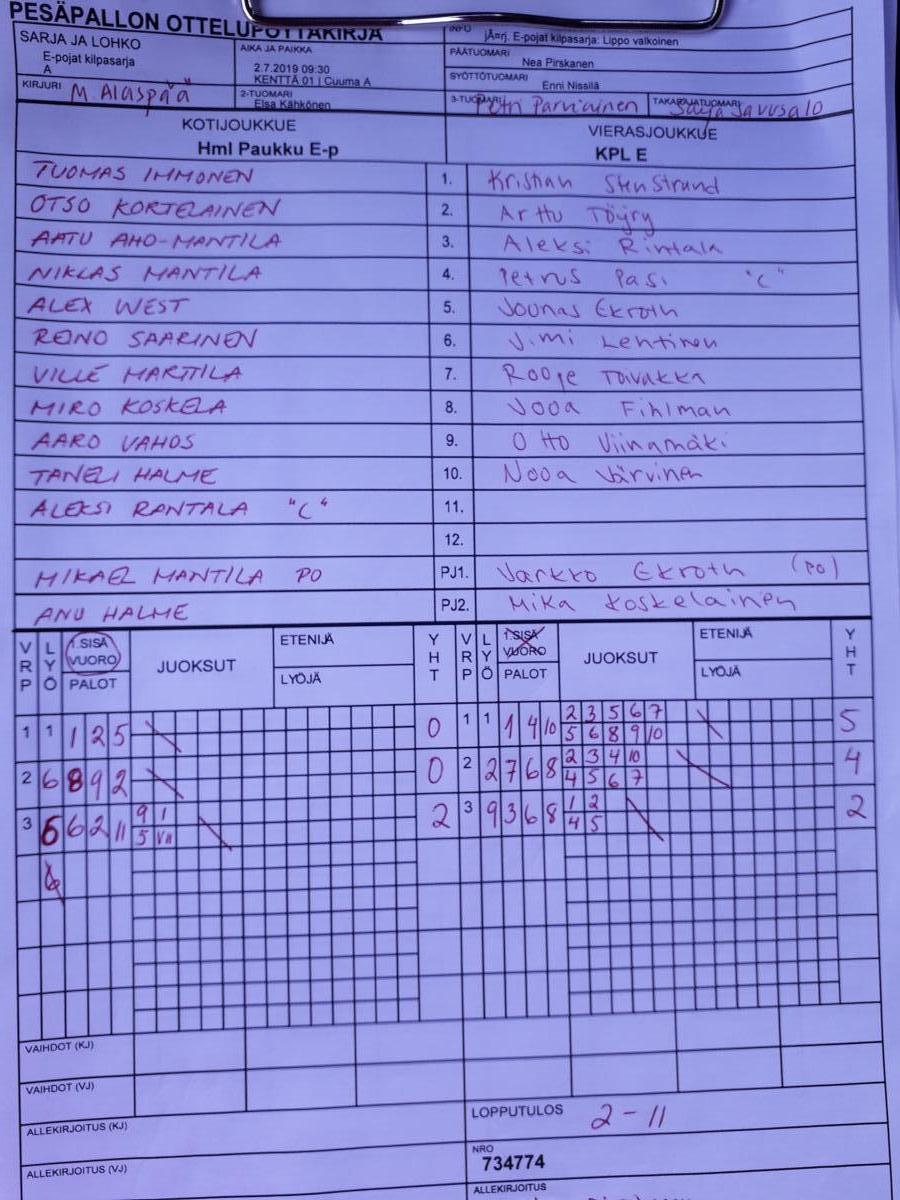 PESÄPALLON OTTELUPÖYTÄKIRJA
SARJA JA LOHKO
E-pojat kilpasarja
A
AIKA JA PAIKKA
2.7.2019 09:30
KENTTÄ 01 | Cuuma A
INFO
jÃ¤rj. E-pojat kilpasarja: Lippo valkoinen
PÄÄTUOMARI
Nea Pirskanen
SYÖTTÖTUOMARI
Enni Nissilä
KIRJURI M Alaspää
2-TUOMARI
Elsa Kähkönen
3-TUOMARI Petri Parviainen
TAKARAJATUOMARI
KOTIJOUKKUE VIERASJOUKKUE
Hml Paukku E-p KPL E
TUOMAS IMMONEN 1. Kristian Stenstrand
OTSO KORTELAINEN 2. Arttu Töyry
AATU AHO-MANTILA 3. Aleksi Rintala
NIKLAS MANTILA 4. Petrus Pasi "C"
ALEX WEST 5. Jounas Ekroth
REINO SAARINEN 6. Jimi Lehtinen
VILLE MARTTILA 7. Roope Toivakka
MIRO KOSKELA 8. Jooa Fihlman
AARO VAHOS 9. Otto Viinamäki
TANELI HALME 10. Nooa Järvinen
ALEKSI RANTALA "C" 11.
12.
MIKAEL MANTILA PO PJ1. Jarkko Ekroth (po)
ANU HALME PJ2. Mika Koskelainen
VRP LYÖ 1.SISÄ VUORO PALOT JUOKSUT ETENIJÄ LYÖJÄ YHT VRP LYÖ 1.SISÄ VUORO PALOT JUOKSUT ETENIJÄ LYÖJÄ YHT
1 1 1 2 5 0 1 1 1 4 10 2 3 5 6 7 5
5 6 8 9 10
2 6 8 9 2 0 2 2 7 6 8 2 3 4 10 4
4 5 6 7
3 6 6 2 11 9 1 2 3 9 3 6 8 1 2 2
5 VII 4 5
VAIHDOT (KJ)
VAIHDOT (VJ)
ALLEKIRJOITUS (KJ)
LOPPUTULOS 2-11
ALLEKIRJOITUS (VJ)
NRO
734774
ALLEKIRJOITUS